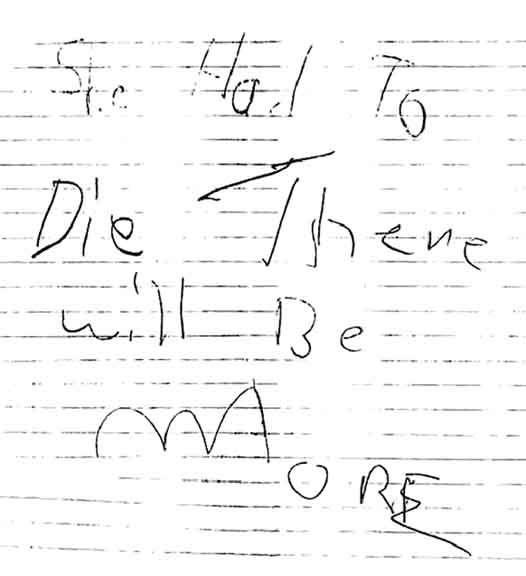 She Had To
Die There
will Be
MORE